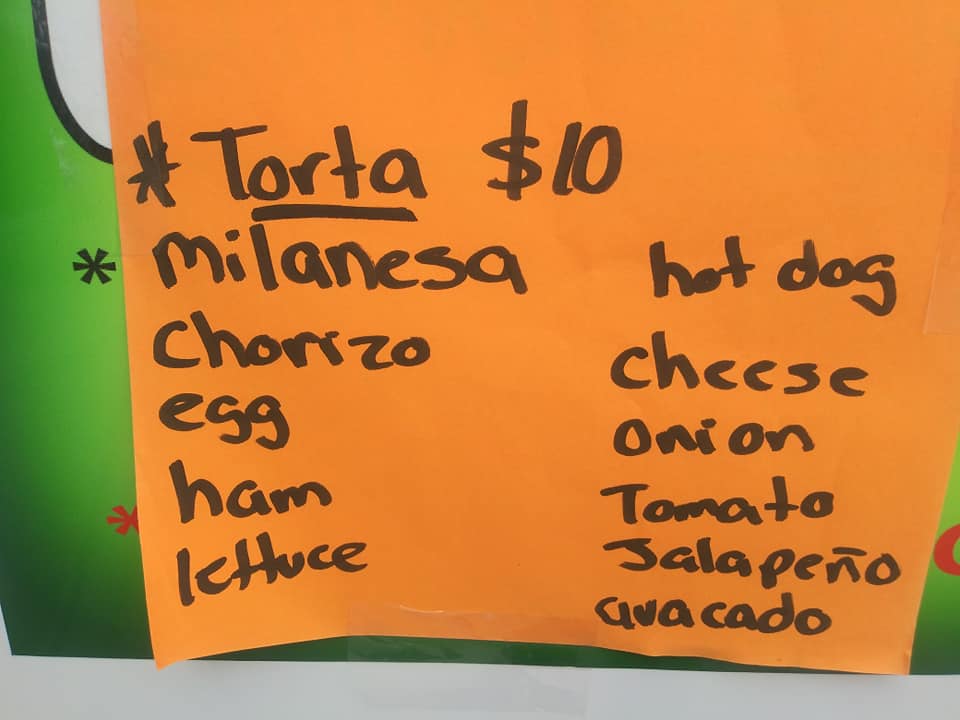 * Torta $10
* milanesa
Chorizo
egg
ham
lettuce
hot dog
cheese
onion
Tomato
Jalapeño
avacado